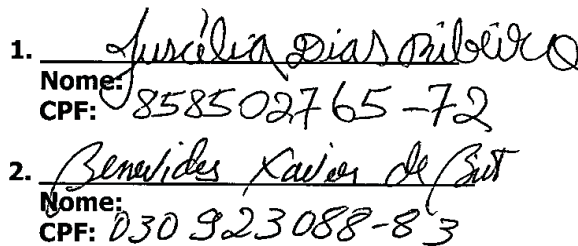 1. Juscélia Dias Ribeiro
Nome:
CPF: 858502765-72
2. Benevides Xavier de
Nome:
CPF: 030923088-83